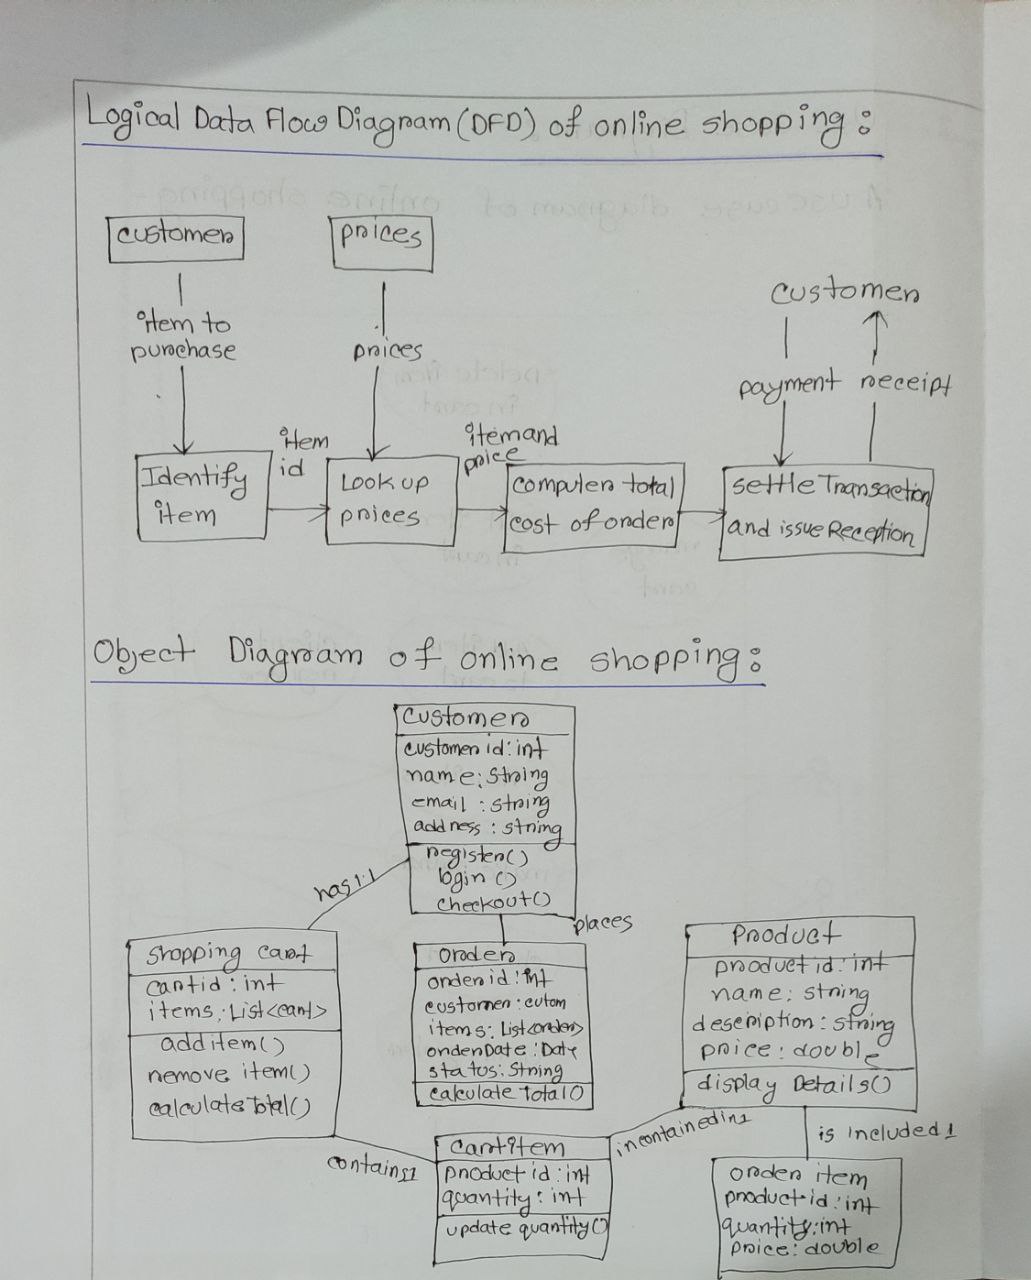 Logical Data Flow Diagram (DFD) of online shopping:
customer
prices
item to
purchase
prices
customer
payment receipt
item
id
item and
price
Identify
item
Look up
prices
computer total
cost of order
settle Transaction
and issue Reception
Object Diagram of online shopping:
customer
customer id: int
name: string
email : string
address : string
register()
login ()
checkout()
has 1:1
places
shopping cart
cartid : int
items: List<cart>
add item()
remove item()
calculate Total()
order
order id: int
customer: cutom
items: List<order>
orderDate: Date
status: String
calculate Total()
product
product id: int
name: string
description: string
price: double
display Details()
contains1
incontainedin1
is included1
cartitem
product id: int
quantity: int
update quantity()
order item
product id: int
quantity: int
price: double